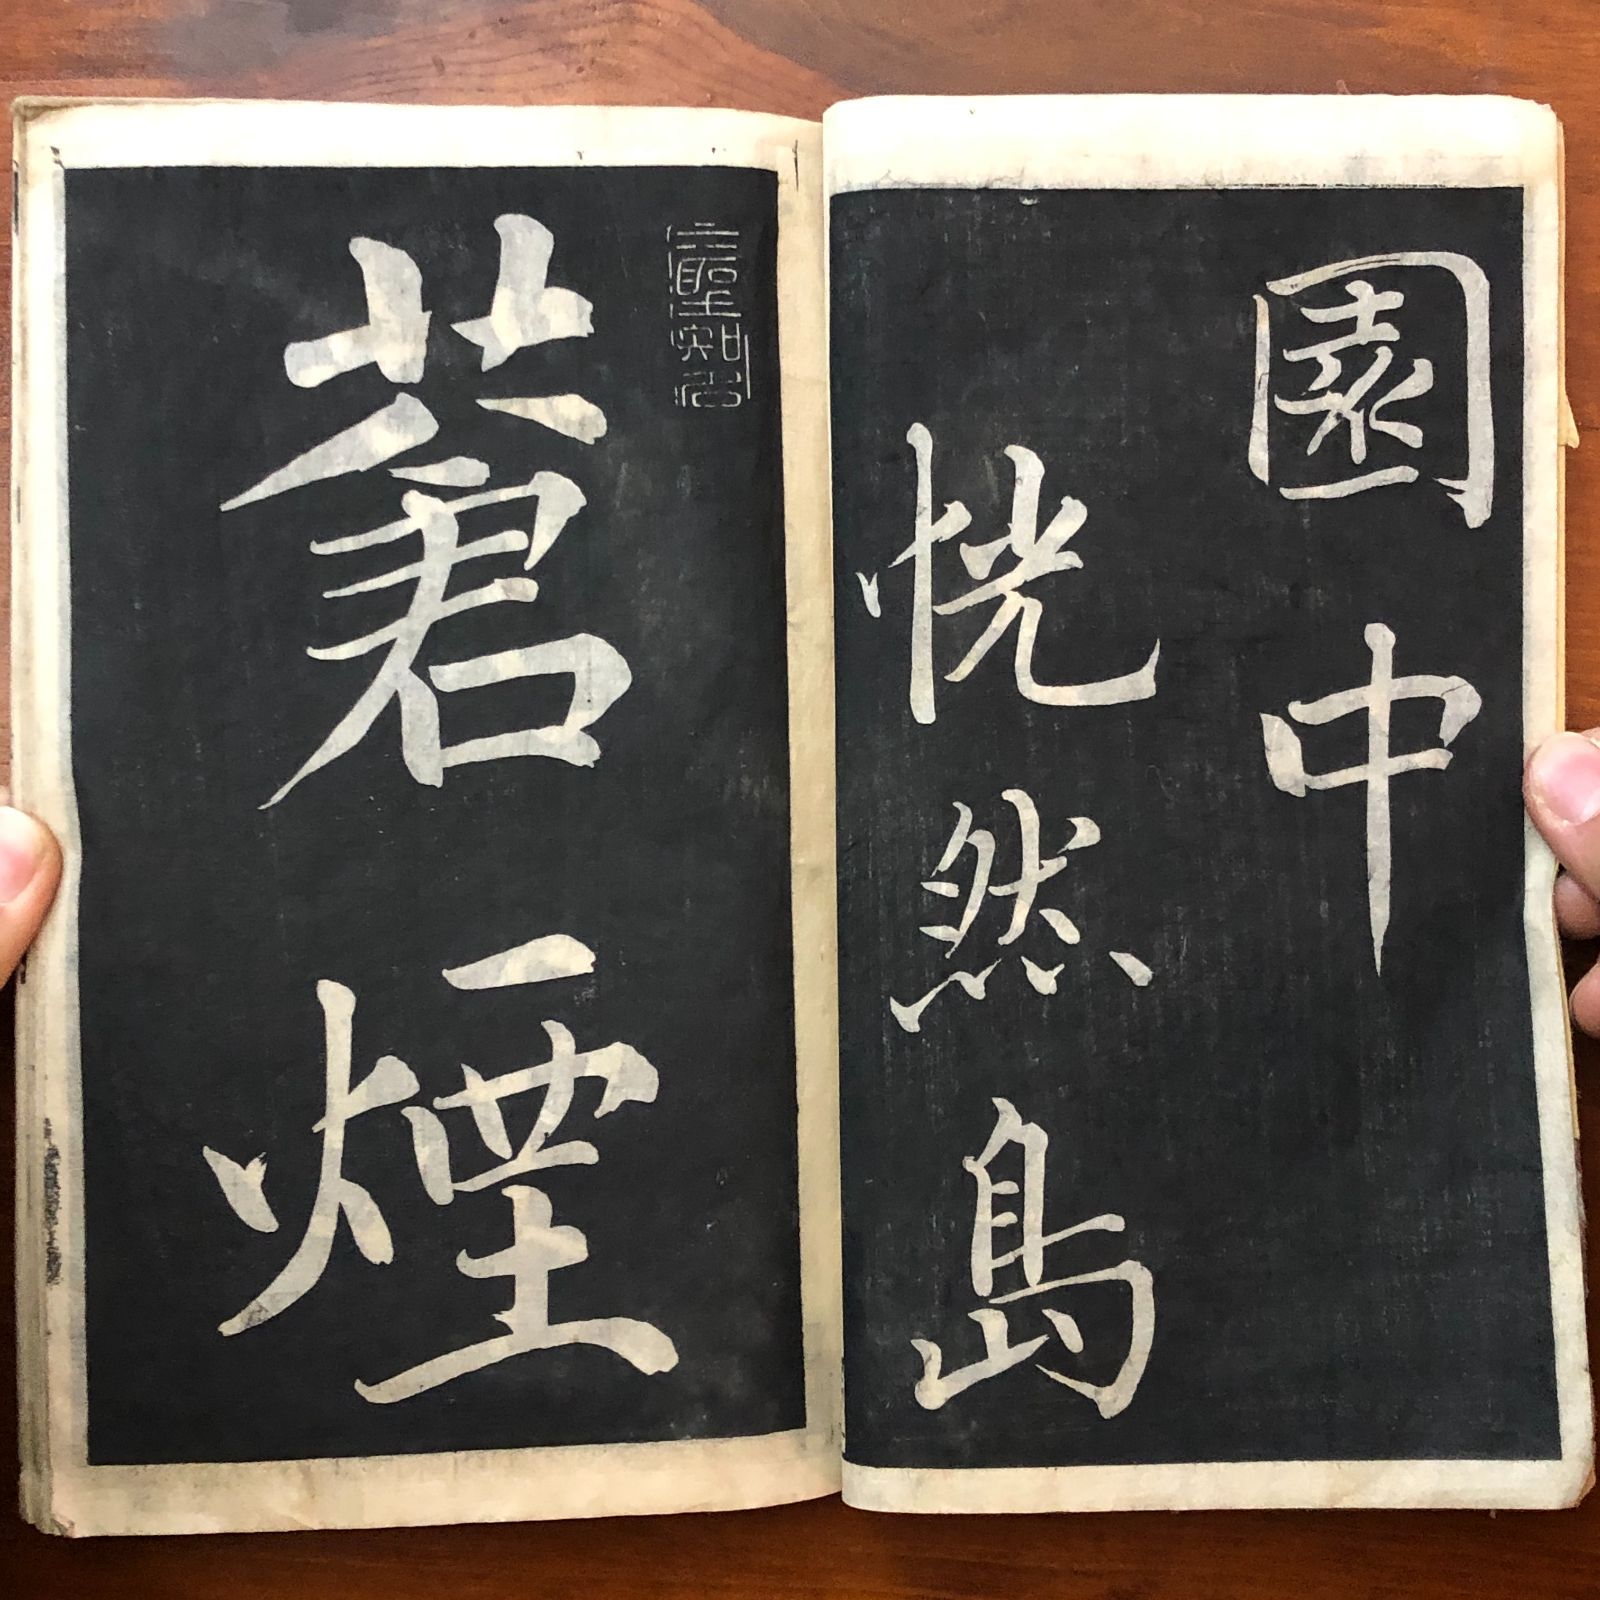 園中
恍然島
蒼煙